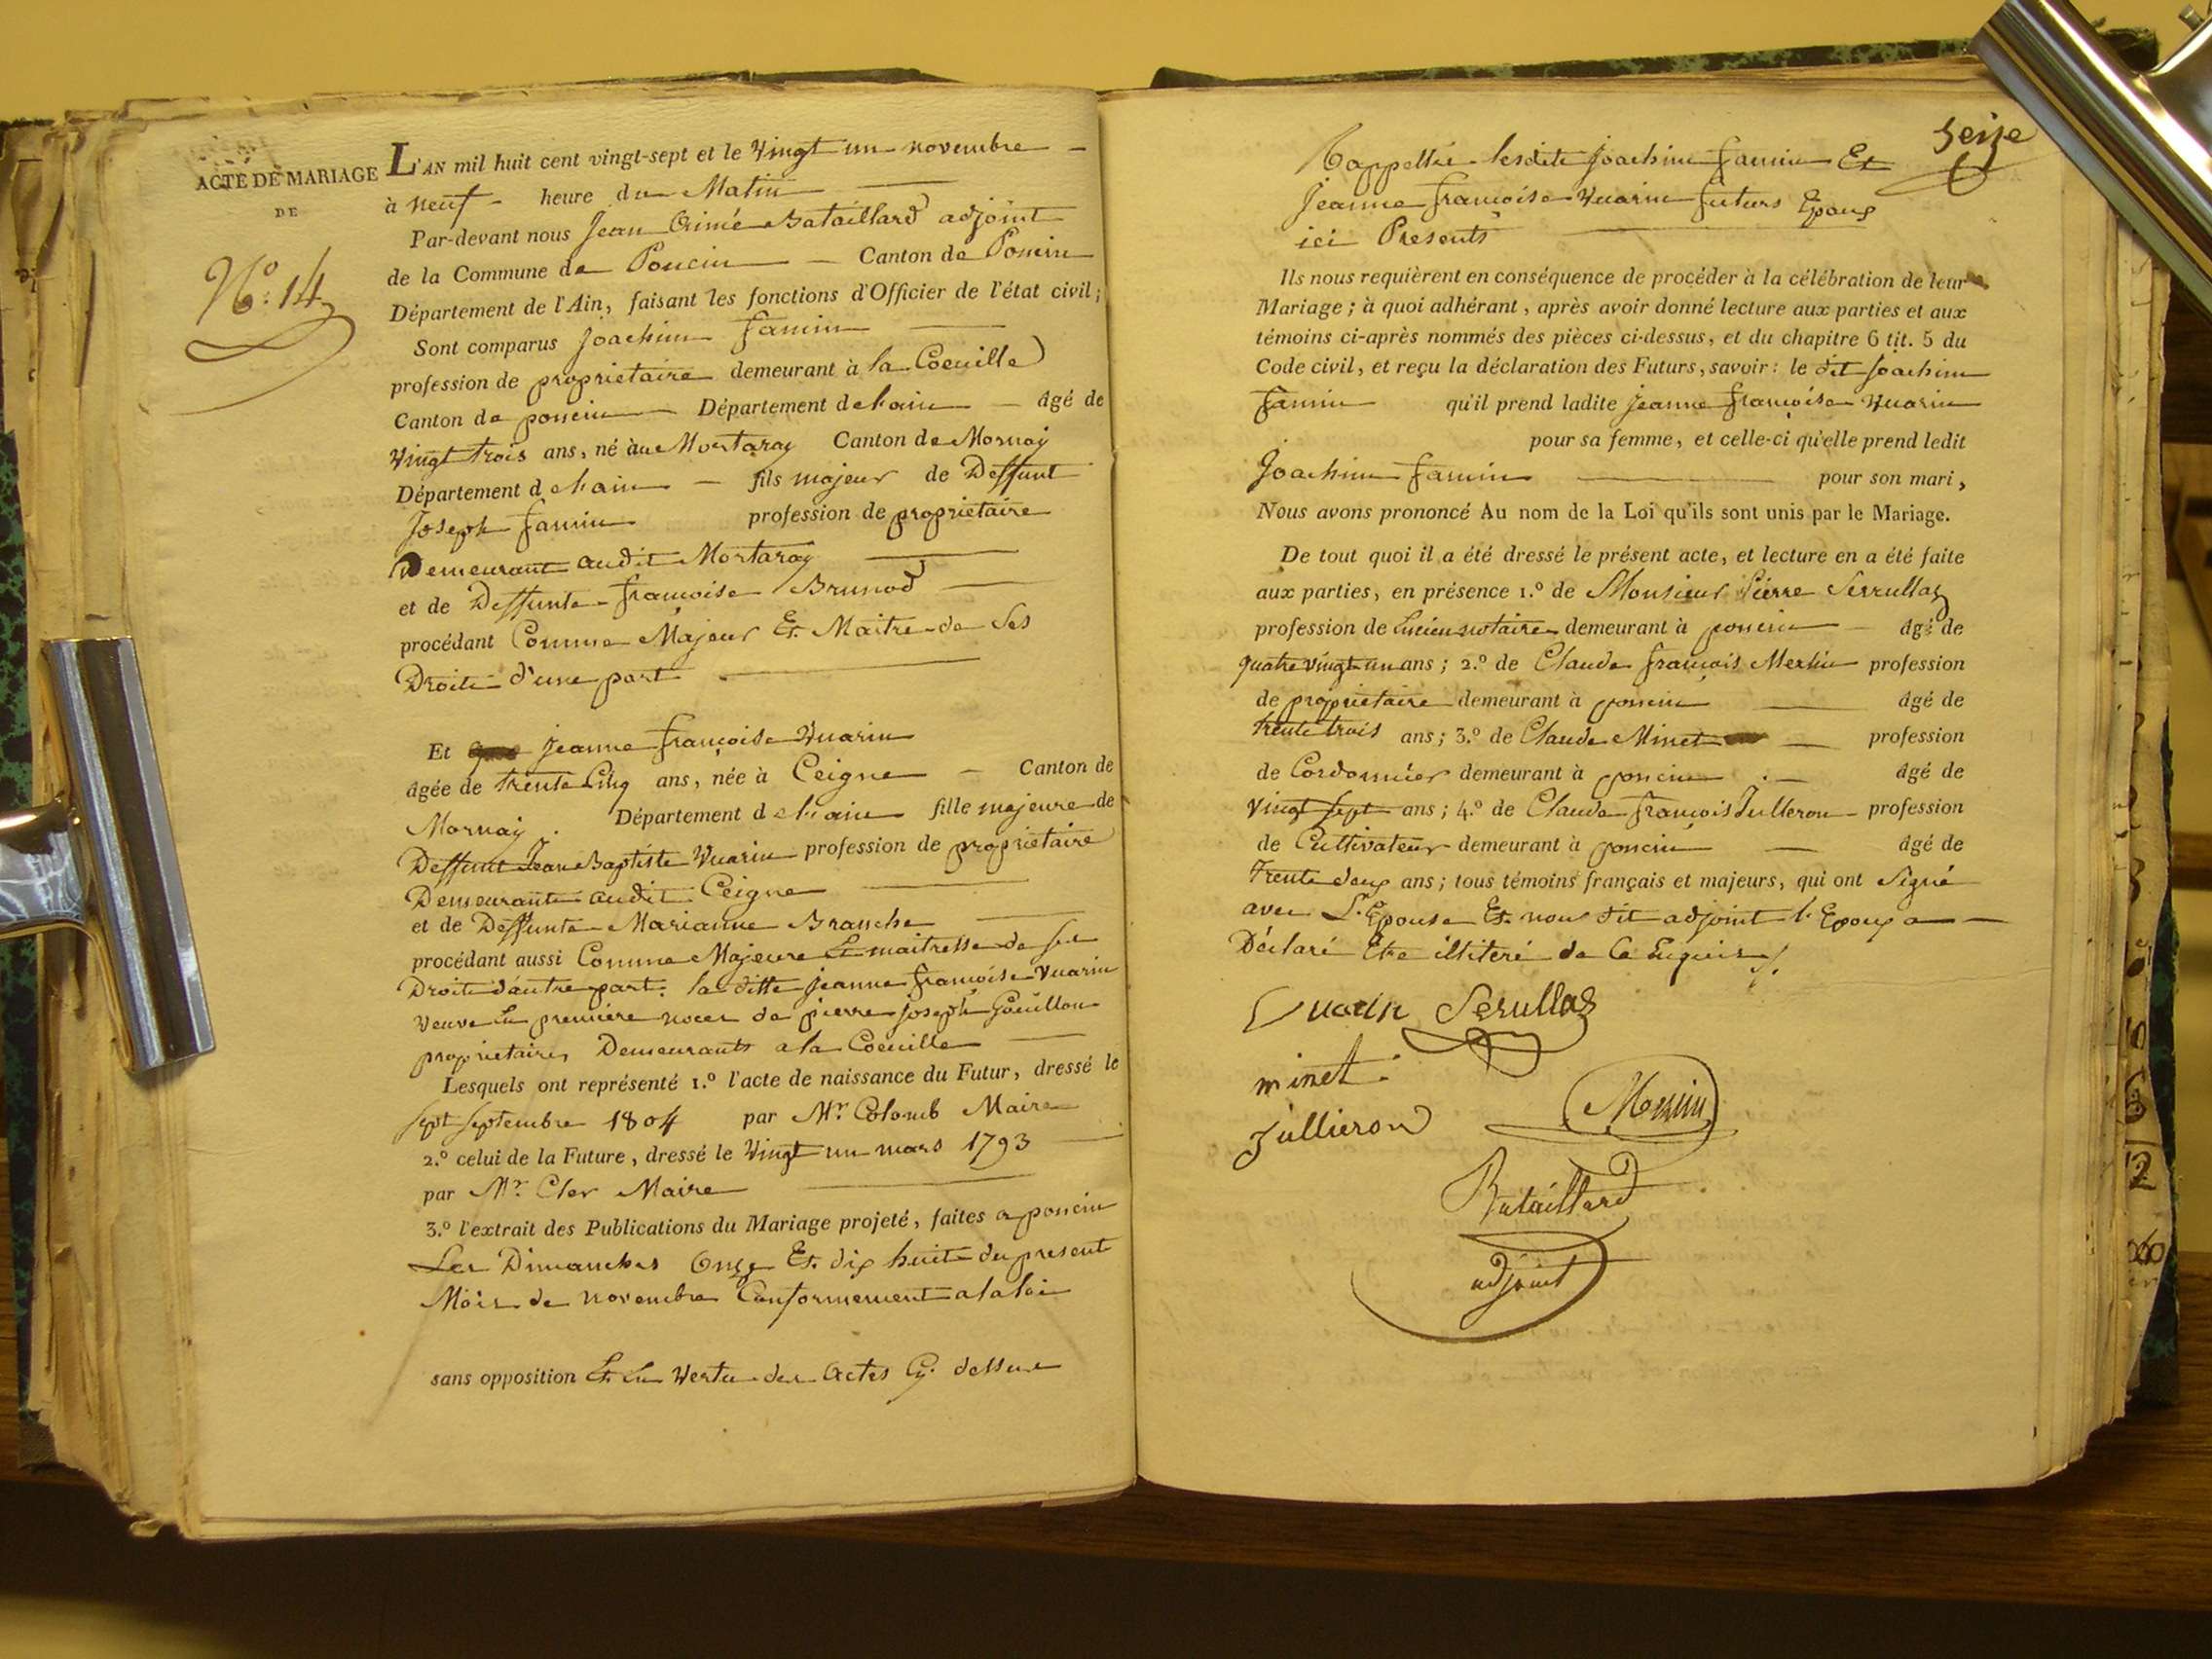 ACTE DE MARIAGE
DE
N.º 14
L'AN mil huit cent vingt-sept et le Vingt un novembre
à neuf heure du Matin
Par-devant nous Jean Aimé Bataillard adjoint
de la Commune de Poncin Canton de Poncin
Département de l'Ain, faisant les fonctions d'Officier de l'état civil;
Sont comparus Joachim famin
profession de proprietaire demeurant à la Coeuille
Canton de poncin Département de l'ain âgé de
Vingt trois ans, né au Mortaray Canton de Mornay
Département de l'ain fils majeur de Deffunt
Joseph famin profession de proprietaire
Demeurant audit Mortaray
et de Deffunte françoise Brunod
procédant Comme Majeur Et Maitre de Ses
Droits d'une part
Et Jeanne françoise Vuarin
âgée de trente Cinq ans, née à Ceigne Canton de
Mornay Département de l'ain fille majeure de
Deffunt Jean Baptiste Vuarin profession de proprietaire
Demeurante audit Ceigne
et de Deffunte Marianne Branche
procédant aussi Comme Majeure Et maitresse de ses
Droits d'autre part. la ditte jeanne françoise Vuarin
Veuve En premiere noces de pierre joseph Goeuillon
proprietaires Demeurants a la Coeuille
Lesquels ont représenté 1.º l'acte de naissance du Futur, dressé le
sept septembre 1804 par Mr. Colomb Maire
2.º celui de la Future, dressé le Vingt un mars 1793
par Mr. Cler Maire
3.º l'extrait des Publications du Mariage projeté, faites a poncin
Les Dimanches Onze Et dix huit du present
Mois de novembre Conformement a la loi
sans opposition Et En Vertu des Actes Cy dessus
seize
Rappellés lesdits Joachim famin Et
Jeanne françoise Vuarin futurs Epoux
ici Presents
Ils nous requièrent en conséquence de procéder à la célébration de leur
Mariage; à quoi adhérant, après avoir donné lecture aux parties et aux
témoins ci-après nommés des pièces ci-dessus, et du chapitre 6 tit. 5 du
Code civil, et reçu la déclaration des Futurs, savoir: le dit Joachim
famin qu'il prend ladite Jeanne françoise Vuarin
pour sa femme, et celle-ci qu'elle prend ledit
Joachim famin pour son mari,
Nous avons prononcé Au nom de la Loi qu'ils sont unis par le Mariage.
De tout quoi il a été dressé le présent acte, et lecture en a été faite
aux parties, en présence 1.º de Monsieur Pierre Serrullaz
profession de notaire demeurant à poncin âgé de
quatre vingt un ans; 2.º de Claude françois Merlin profession
de proprietaire demeurant à poncin âgé de
trente trois ans; 3.º de Claude Minet profession
de Cordonnier demeurant à poncin âgé de
Vingt sept ans; 4.º de Claude françois Jullieron profession
de Cultivateur demeurant à poncin âgé de
Trente deux ans; tous témoins français et majeurs, qui ont Signé
avec L'Epouse Et nous dit adjoint l'Epoux a
Déclaré Etre illiteré de Ce Enquis
Vuarin Serullaz
minet
Jullieron Merlin
Bataillard
adjoint